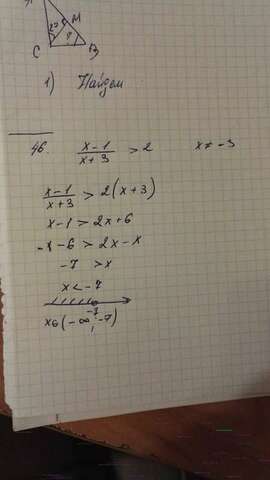 C
M
B
1) Найдем
46. x-1/x+3 > 2 x ≠ -3
x-1/x+3 > 2(x+3)
x-1 > 2x+6
-1-6 > 2x-x
-7 > x
x < -7
-7
x∈(-∞; -7)